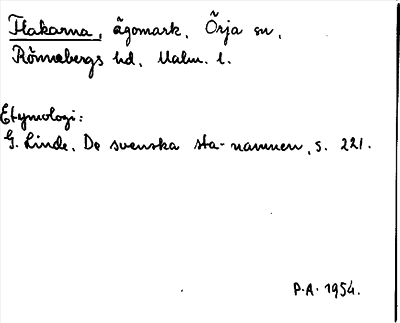 Flakarna, ägomark, Örja sn,
Rönnebergs hd, Malm. l.
Etymologi:
G. Linde, De svenska sta-namnen, s. 221.
P.A. 1954.